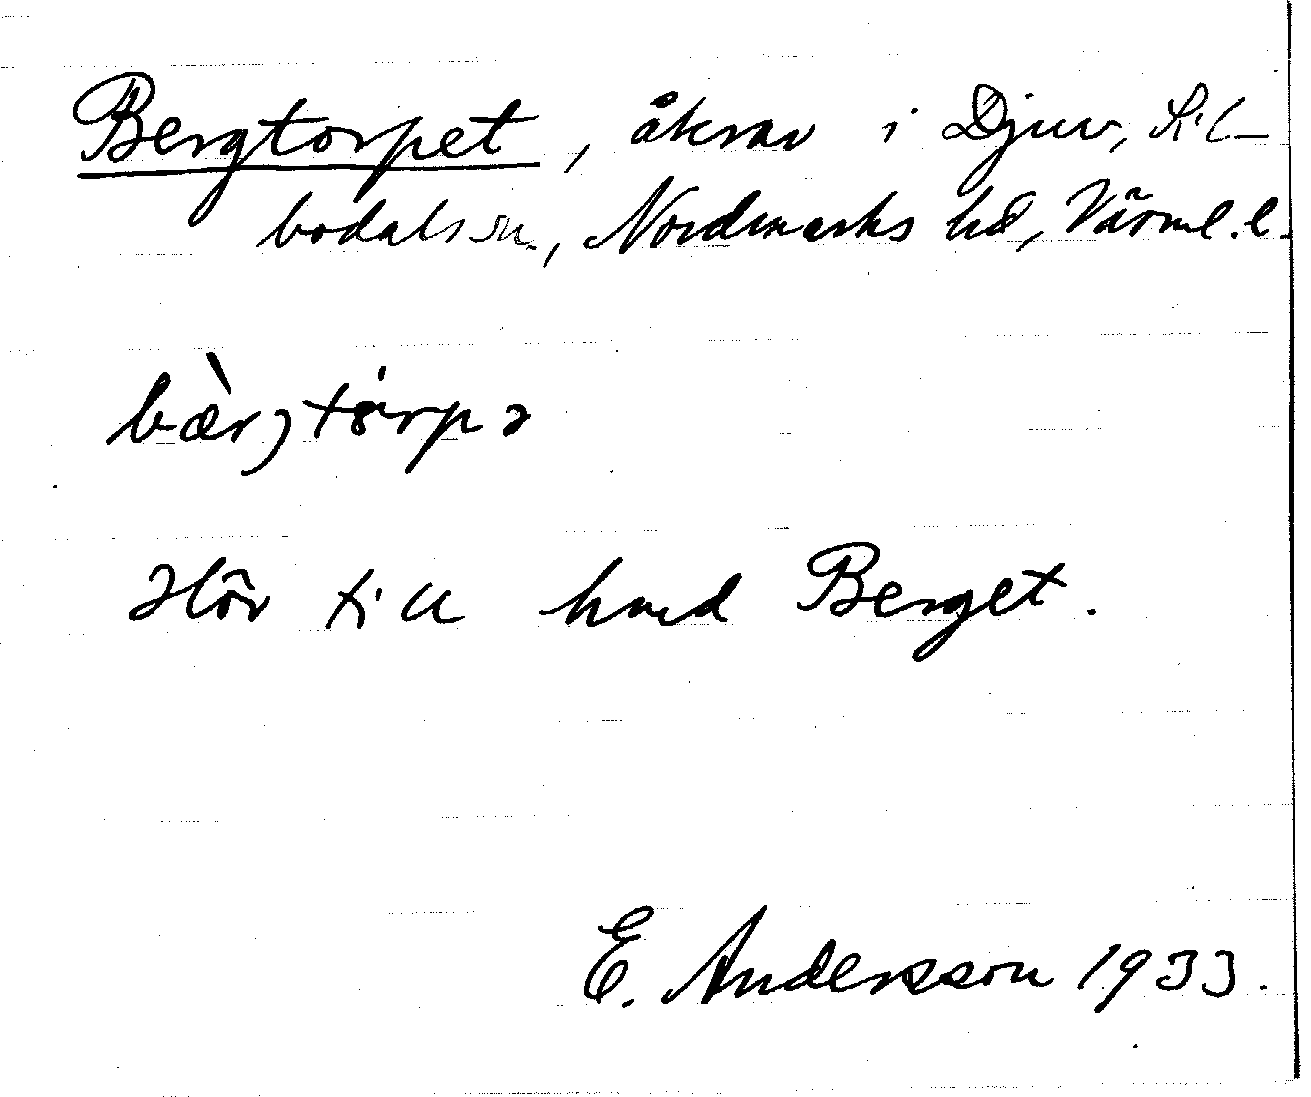 Bergtorpet, åkrar i Djuv, Sil-
bodals sn., Nordmarks hd, Värml. l.
bæ̀rjtórpə
Hör till hmd Berget.
E. Andersson 1933.